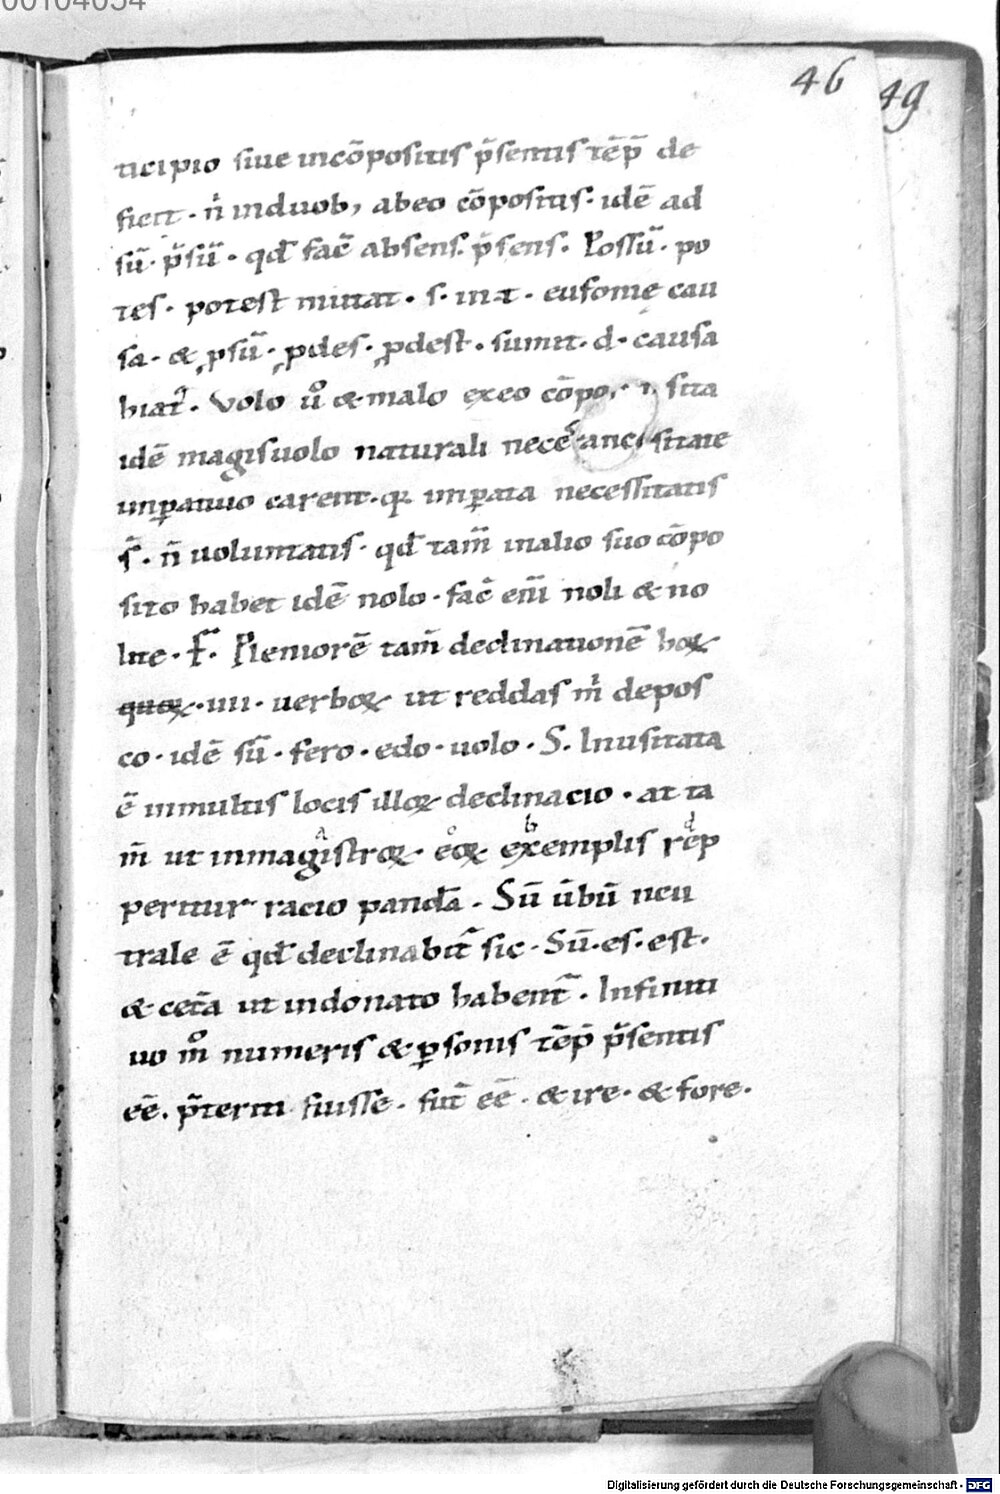 00104054
46 49
ticipio siue incōpositis p̄sentis tēp̄ de
ficit · n̄ induob, abeo cōpositis · idē ad
sū · p̄sū · qđ fac̄ absens · p̄sens · Possū · po
tes · potest mutat · s · in · t · eufonie cau
sa · & ꝓsū · ꝓdes · ꝓdest · sumit · d · causa
hiat᷒ · Volo ů & malo exeo cōpo sita
idē magisuolo naturali necē sitate
inꝑatiuo carent · qr inꝑata necessitatis
s̄ · n̄ uoluntatis · qđ tam̄ inalio suo cōpo
sito habet idē nolo · fac̄ eni᷒ noli & no
lite · F᷒ · Pleniorē tam̄ declinationē hoꝝ
quoꝝ · iiii · uerboꝝ ut reddas m̊ depos
co · idē sū · fero · edo · uolo · S · Inusitata
ē inmultis locis illoꝝ declinacio · at ta
m̄ ut inmagistroꝝ eoꝝ exemplis rep
peritur racio panda᷒ · Sū ūbū neu
trale ē qđ declinabit᷒ sic · Sū · es · est ·
& ceta᷒ ut indonato habent᷒ · Infiniti
uo m̊ numeris & ꝑsonis tēp̄ p̄sentis
eē · p̄teriti fuisse · fut᷒ eē · & ire · & fore ·
Digitalisierung gefördert durch die Deutsche Forschungsgemeinschaft - DFG